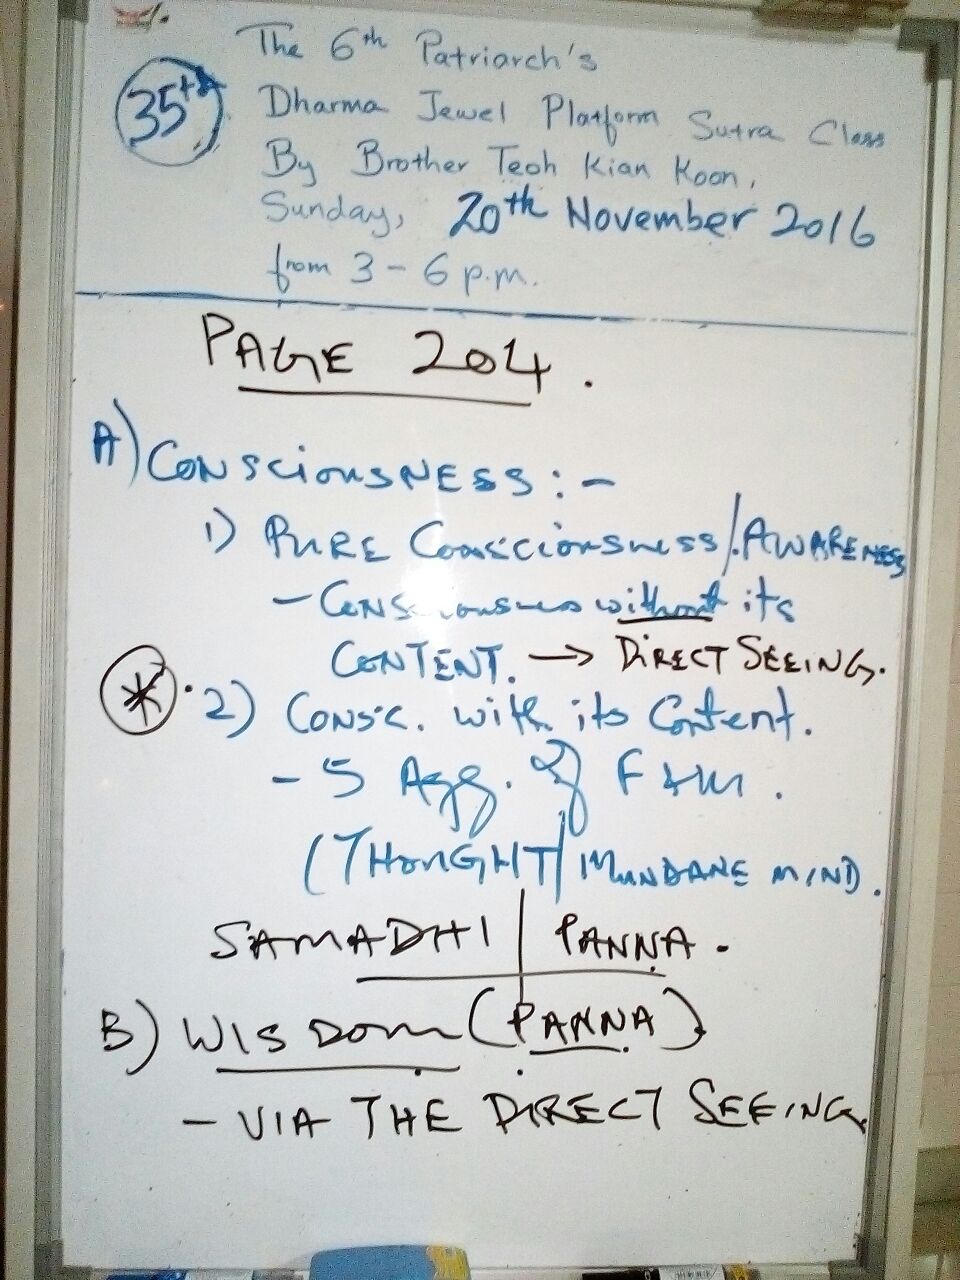 35th
The 6th Patriarch's
Dharma Jewel Platform Sutra Class
By Brother Teoh Kian Koon,
Sunday, 20th November 2016
from 3 - 6 p.m.
PAGE 204.
A) CONSCIOUSNESS :-
1) PURE Consciousness/AWARENESS
- Consciousness without its
CONTENT. → DIRECT SEEING.
* 2) CONSC. with its Content.
- 5 Agg. of F & M.
(THOUGHT/MUNDANE MIND).
SAMADHI | PANNA.
B) WISDOM (PANNA)
- VIA THE DIRECT SEEING.